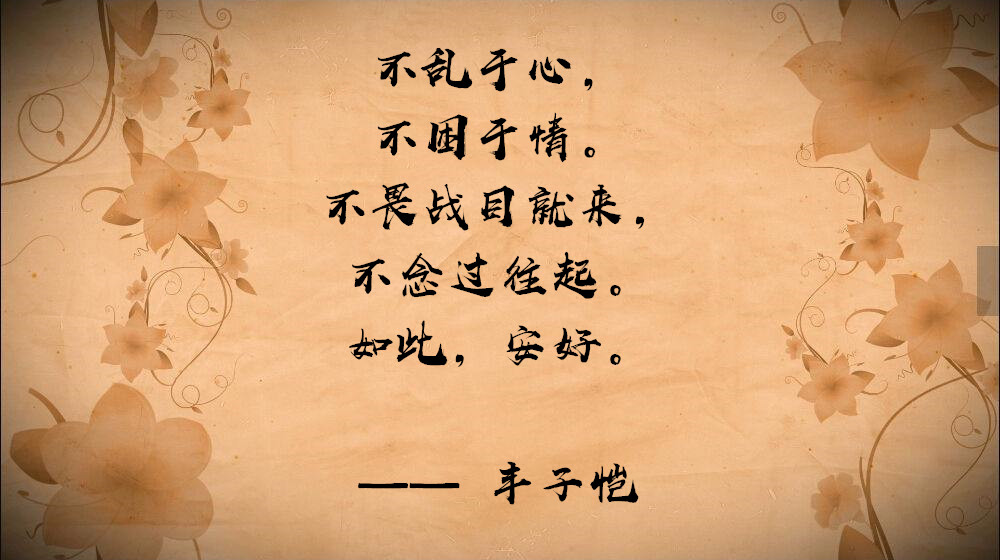 不乱于心，
不困于情。
不畏战目就来，
不念过往起。
如此，安好。
—— 丰子恺